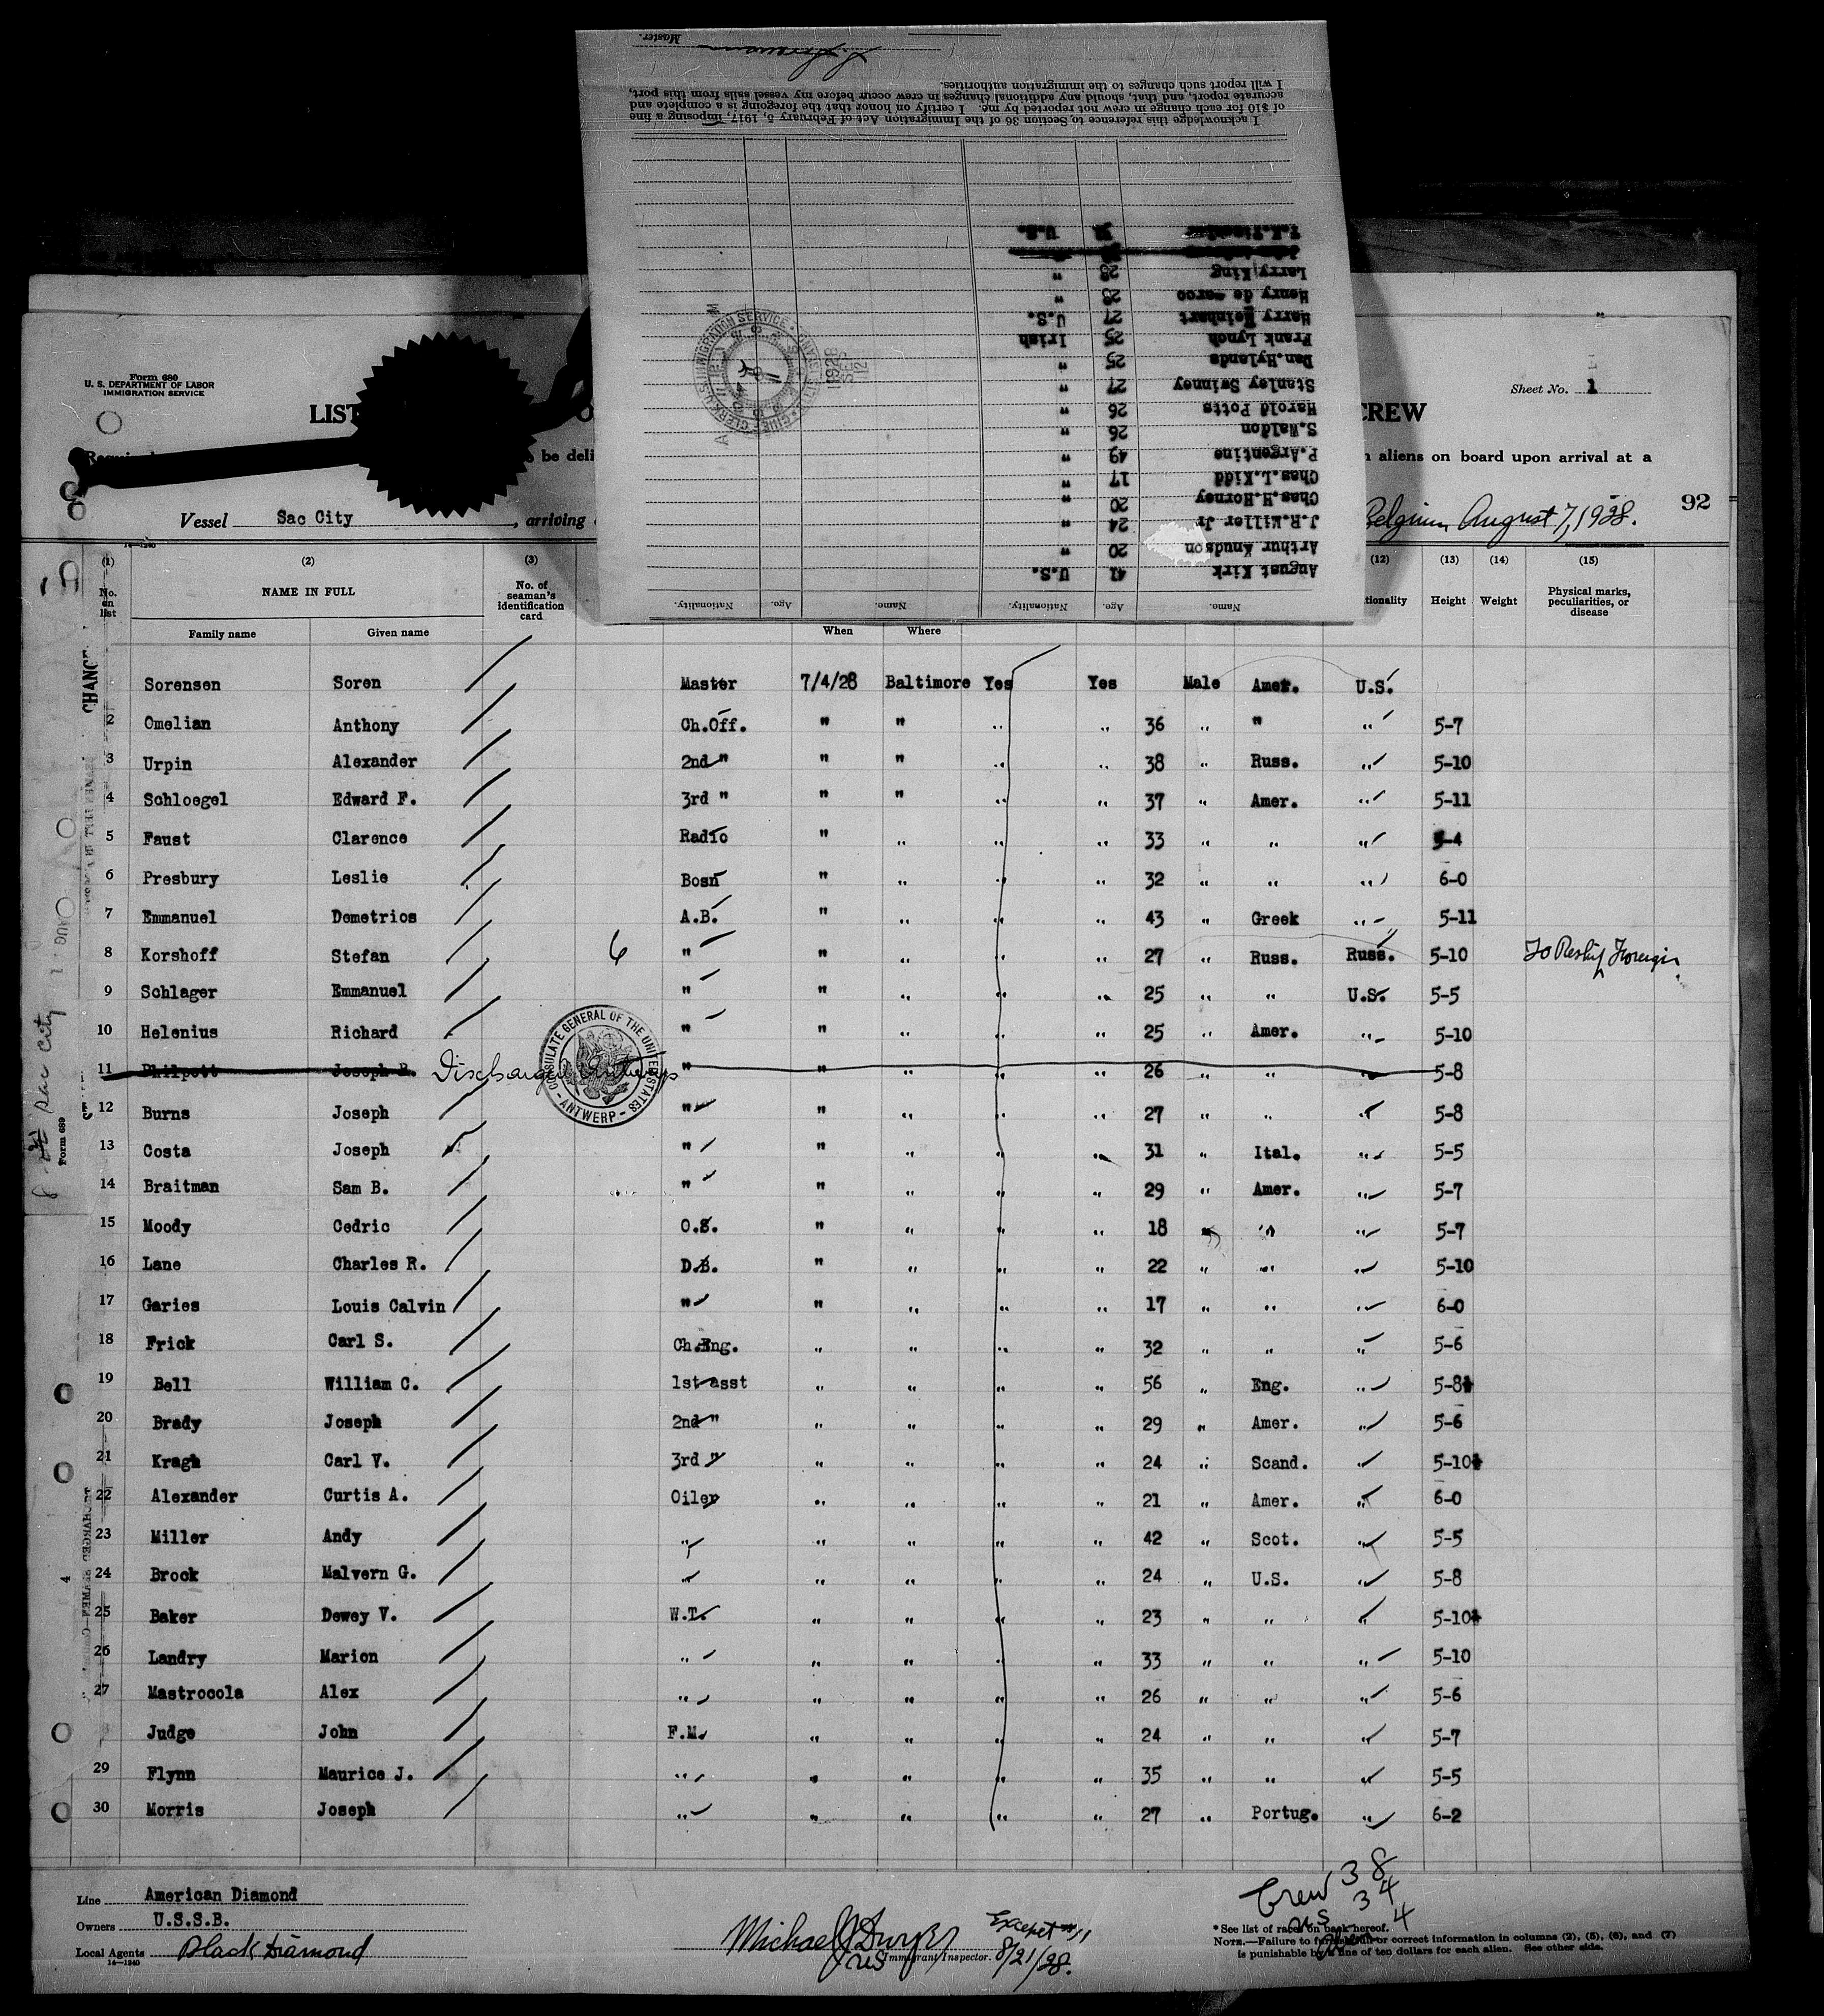 Master.
I will report such changes to the immigration authorities.
accurate report, and that, should any additional changes in crew occur before my vessel sails from this port,
of $10 for each change in crew not reported by me. I certify on honor that the foregoing is a complete and
I acknowledge this reference to Section 36 of the Immigration Act of February 5, 1917, imposing a fine
U.S.
Larry King 28 "
Henry de 28 "
Harry Reinhart 27 U.S.
Frank Lynch 25 Irish
Dan. Hylands 25 "
Stanley Swinney 27 "
Harold Potts 26 "
S. Waldon 26 "
P. Argentine 49 "
Chas. L. Kidd 17 "
Chas. H. Horney 20 "
J.R. Miller Jr 24 "
Arthur Knudson 20 "
August Kirk 41 U.S.
Name. Age. Nationality. Name. Age. Nationality.
U.S. IMMIGRATION SERVICE
CHIEF CLERK
1928
SEP
12
Form 689
U. S. DEPARTMENT OF LABOR
IMMIGRATION SERVICE
Sheet No. 1
LIST CREW
be deli aliens on board upon arrival at a
Vessel Sac City, arriving Belgium August 7, 1928.
92
(1) (2) (3) (12) (13) (14) (15)
No. on list NAME IN FULL No. of seaman's identification card Height Weight Physical marks, peculiarities, or disease
Family name Given name When Where
Sorensen Soren Master 7/4/28 Baltimore Yes Yes Male Amer. U.S.
2 Omelian Anthony Ch.Off. " " " " 36 " " " 5-7
3 Urpin Alexander 2nd " " " " " 38 " Russ. " 5-10
4 Schloegel Edward F. 3rd " " " " " 37 " Amer. " 5-11
5 Faust Clarence Radio " " " " 33 " " " 5-4
6 Presbury Leslie Bosn " " " " 32 " " " 6-0
7 Emmanuel Demetrios A.B. " " " " 43 " Greek " 5-11
8 Korshoff Stefan 6 " " " " " 27 " Russ. Russ. 5-10 To Reship Foreign
9 Schlager Emmanuel " " " " " 25 " " U.S. 5-5
10 Helenius Richard " " " " " 25 " Amer. " 5-10
11 Philpott Joseph B. Discharged Antwerp " " " " " 26 " " " 5-8
CONSULATE GENERAL OF THE UNITED STATES
- ANTWERP -
12 Burns Joseph " " " " " 27 " " " 5-8
13 Costa Joseph " " " " " 31 " Ital. " 5-5
14 Braitman Sam B. " " " " " 29 " Amer. " 5-7
15 Moody Cedric O.S. " " " " 18 " " " 5-7
16 Lane Charles R. D.B. " " " " 22 " " " 5-10
17 Garies Louis Calvin " " " " " 17 " " " 6-0
18 Frick Carl S. Ch.Eng. " " " " 32 " " " 5-6
19 Bell William C. 1st asst " " " " 56 " Eng. " 5-8
20 Brady Joseph 2nd " " " " " 29 " Amer. " 5-6
21 Kragh Carl V. 3rd " " " " " 24 " Scand. 5-10
22 Alexander Curtis A. Oiler " " " " 21 " Amer. " 6-0
23 Miller Andy " " " " " 42 " Scot. " 5-5
24 Brock Malvern G. " " " " " 24 " U.S. " 5-8
25 Baker Dewey V. W.T. " " " " 23 " " " 5-10
26 Landry Marion " " " " " 33 " " " 5-10
27 Mastrocola Alex " " " " " 26 " " " 5-6
Judge John F.M. " " " " 24 " " " 5-7
29 Flynn Maurice J. " " " " " 35 " " " 5-5
30 Morris Joseph " " " " " 27 " Portug. " 6-2
Crew 38
U.S. 34
4
Line American Diamond
Owners U.S.S.B.
Local Agents Black Diamond
14—1240
Michael J Dwyer
US Immigrant Inspector.
Except #11
8/21/28.
* See list of races on back hereof.
NOTE.—Failure to furnish full or correct information in columns (2), (5), (6), and (7)
is punishable by a fine of ten dollars for each alien. See other side.
Sac City
Form 689